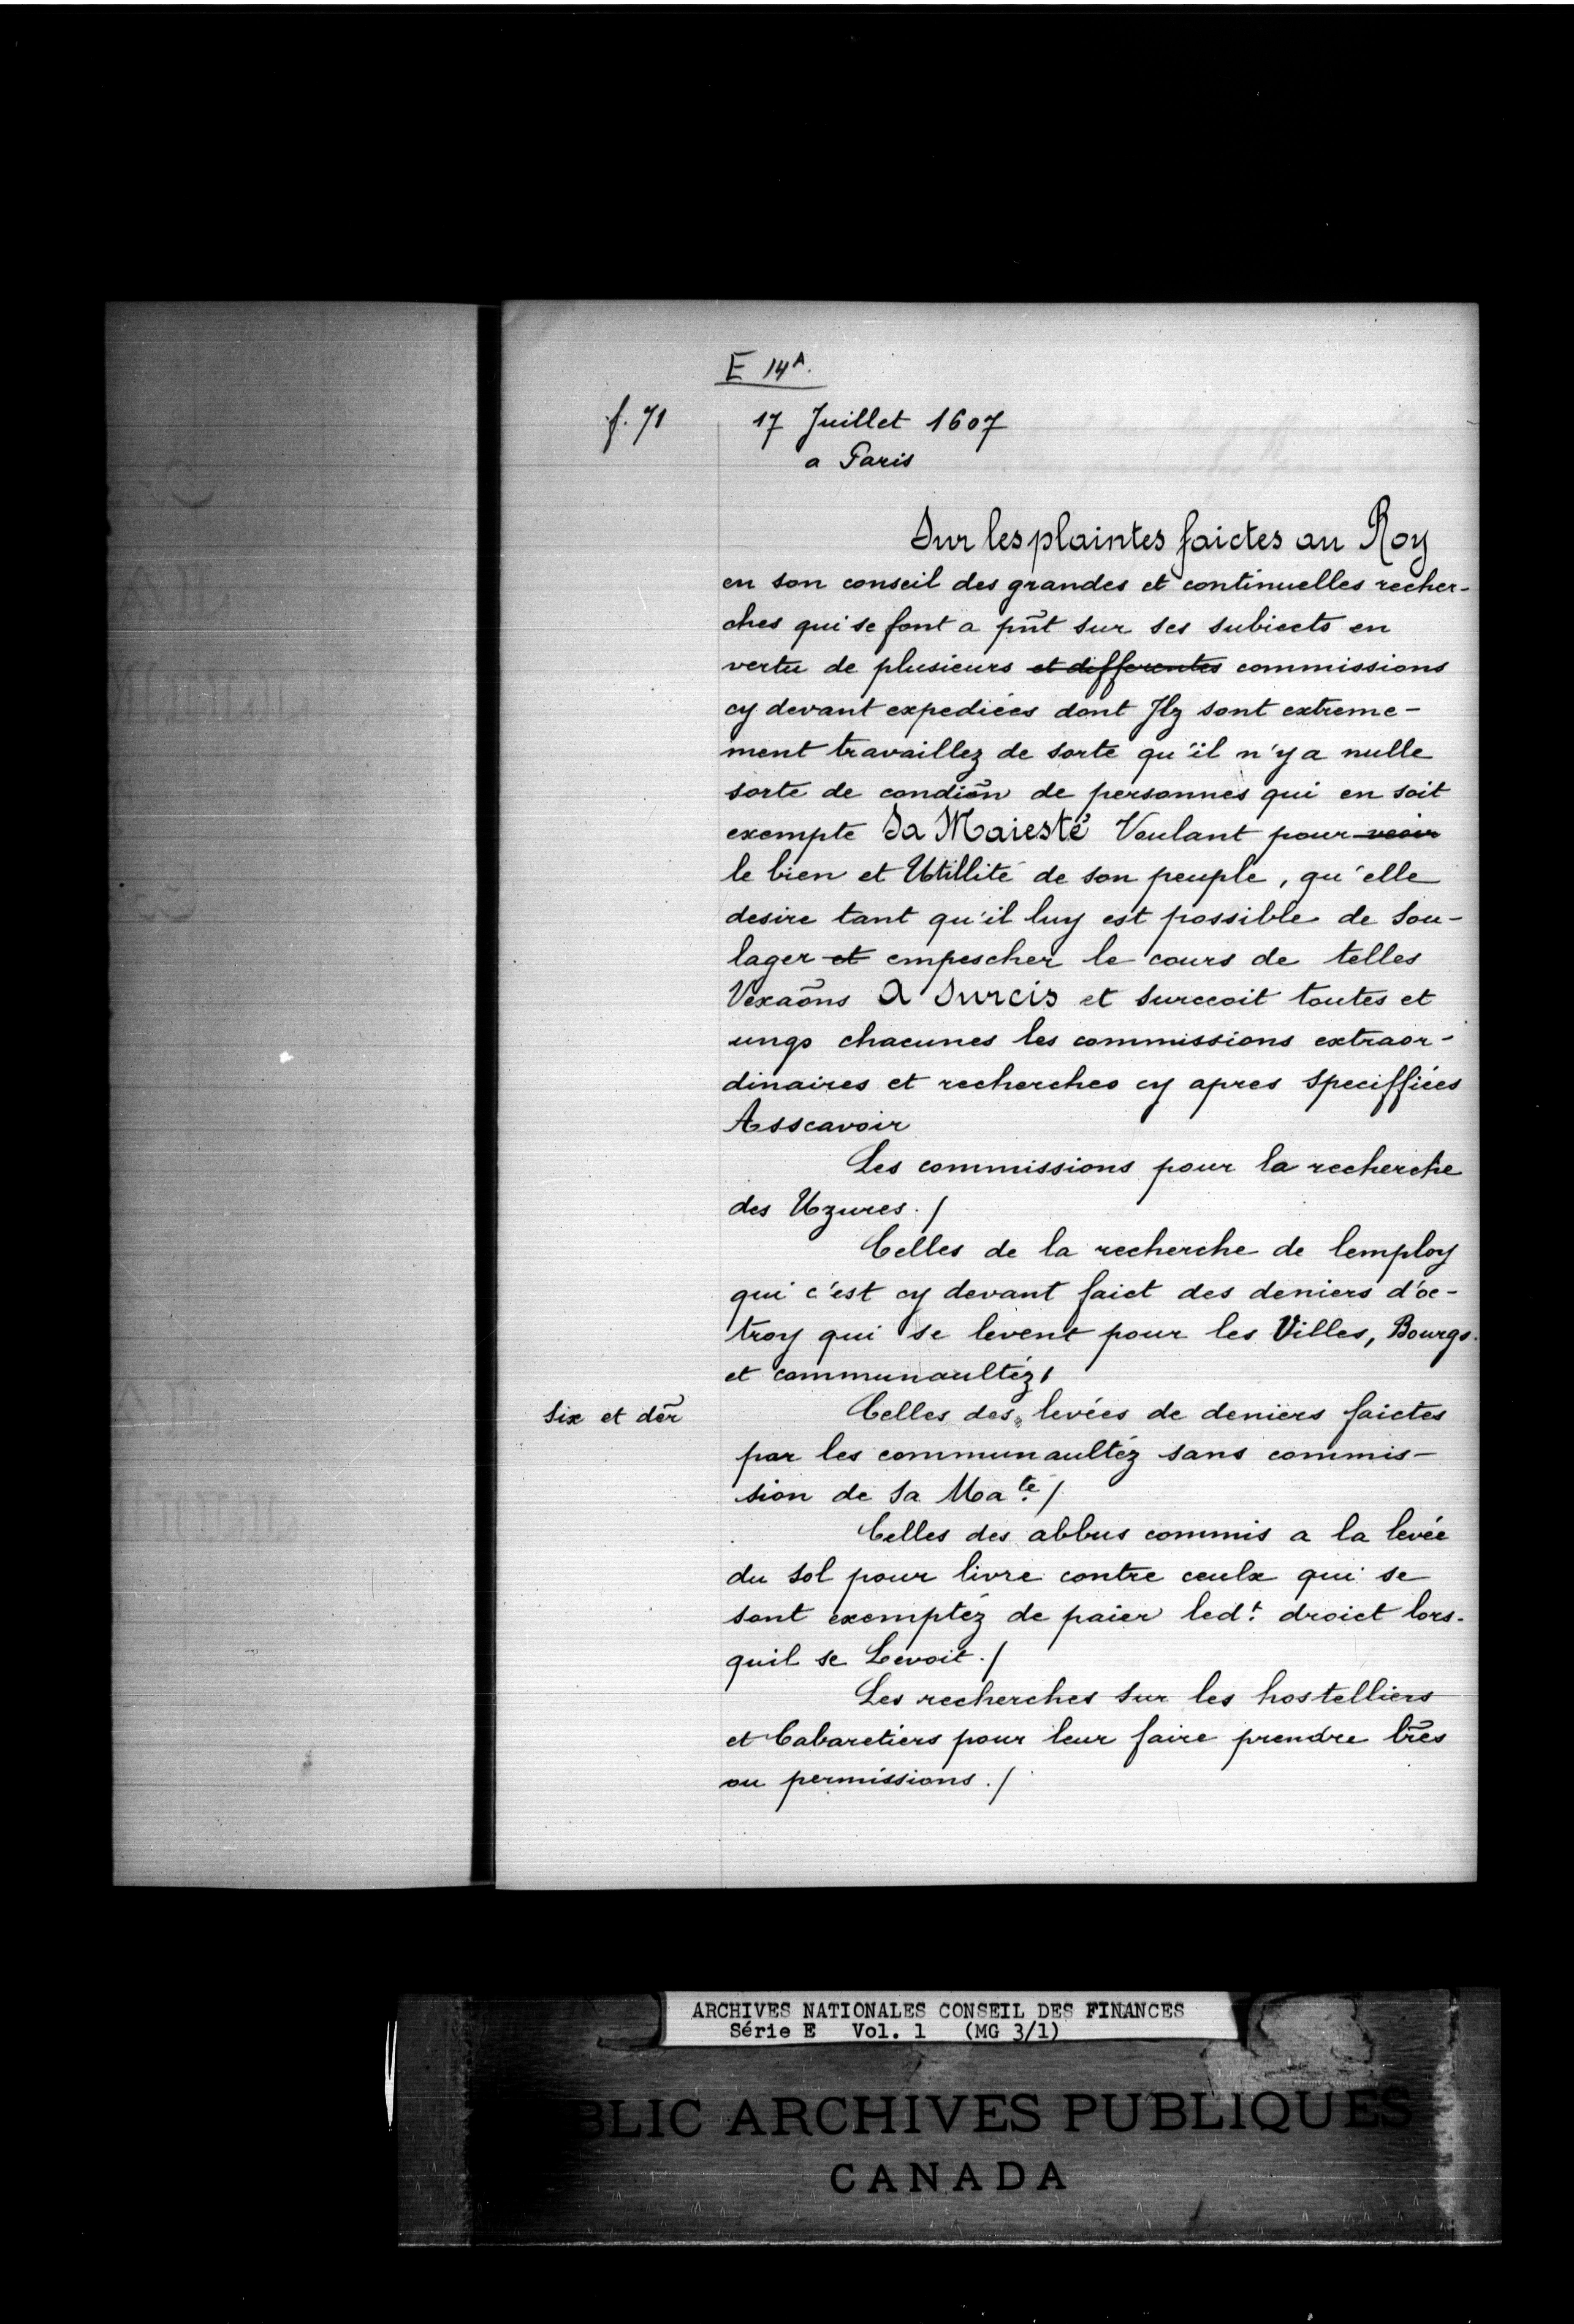 E 14A.
f. 71
17 Juillet 1607
a Paris
Sur les plaintes faictes au Roy
en son conseil des grandes et continuelles recher-
ches qui se font a pñt sur ses subiects en
vertu de plusieurs et differentes commissions
cy devant expediées dont Ilz sont extreme-
ment travaillez de sorte qu'il n'y a nulle
sorte de condiõn de personnes qui en soit
exempte Sa Maiesté Voulant pour veoir
le bien et Utillité de son peuple, qu'elle
desire tant qu'il luy est possible de sou-
lager et empescher le cours de telles
Vexaõns A Surcis et surceoit toutes et
ungs chacunes les commissions extraor-
dinaires et recherches cy apres speciffiées
Asscavoir
Les commissions pour la recherche
des Uzures. /
Celles de la recherche de lemploy
qui c'est cy devant faict des deniers d'oc-
troy qui se levent pour les Villes, Bourgs.
et communaultéz /
six et dẽr
Celles des levées de deniers faictes
par les communaultéz sans commis-
sion de Sa Ma.té /
Celles des abbus commis a la levée
du sol pour livre contre ceulx qui se
sont exemptéz de paier led.t droict lors-
quil se Levoit. /
Les recherches sur les hostelliers
et Cabaretiers pour leur faire prendre lr̃es
ou permissions. /
ARCHIVES NATIONALES CONSEIL DES FINANCES
Série E Vol. 1 (MG 3/1)
BLIC ARCHIVES PUBLIQUES
CANADA